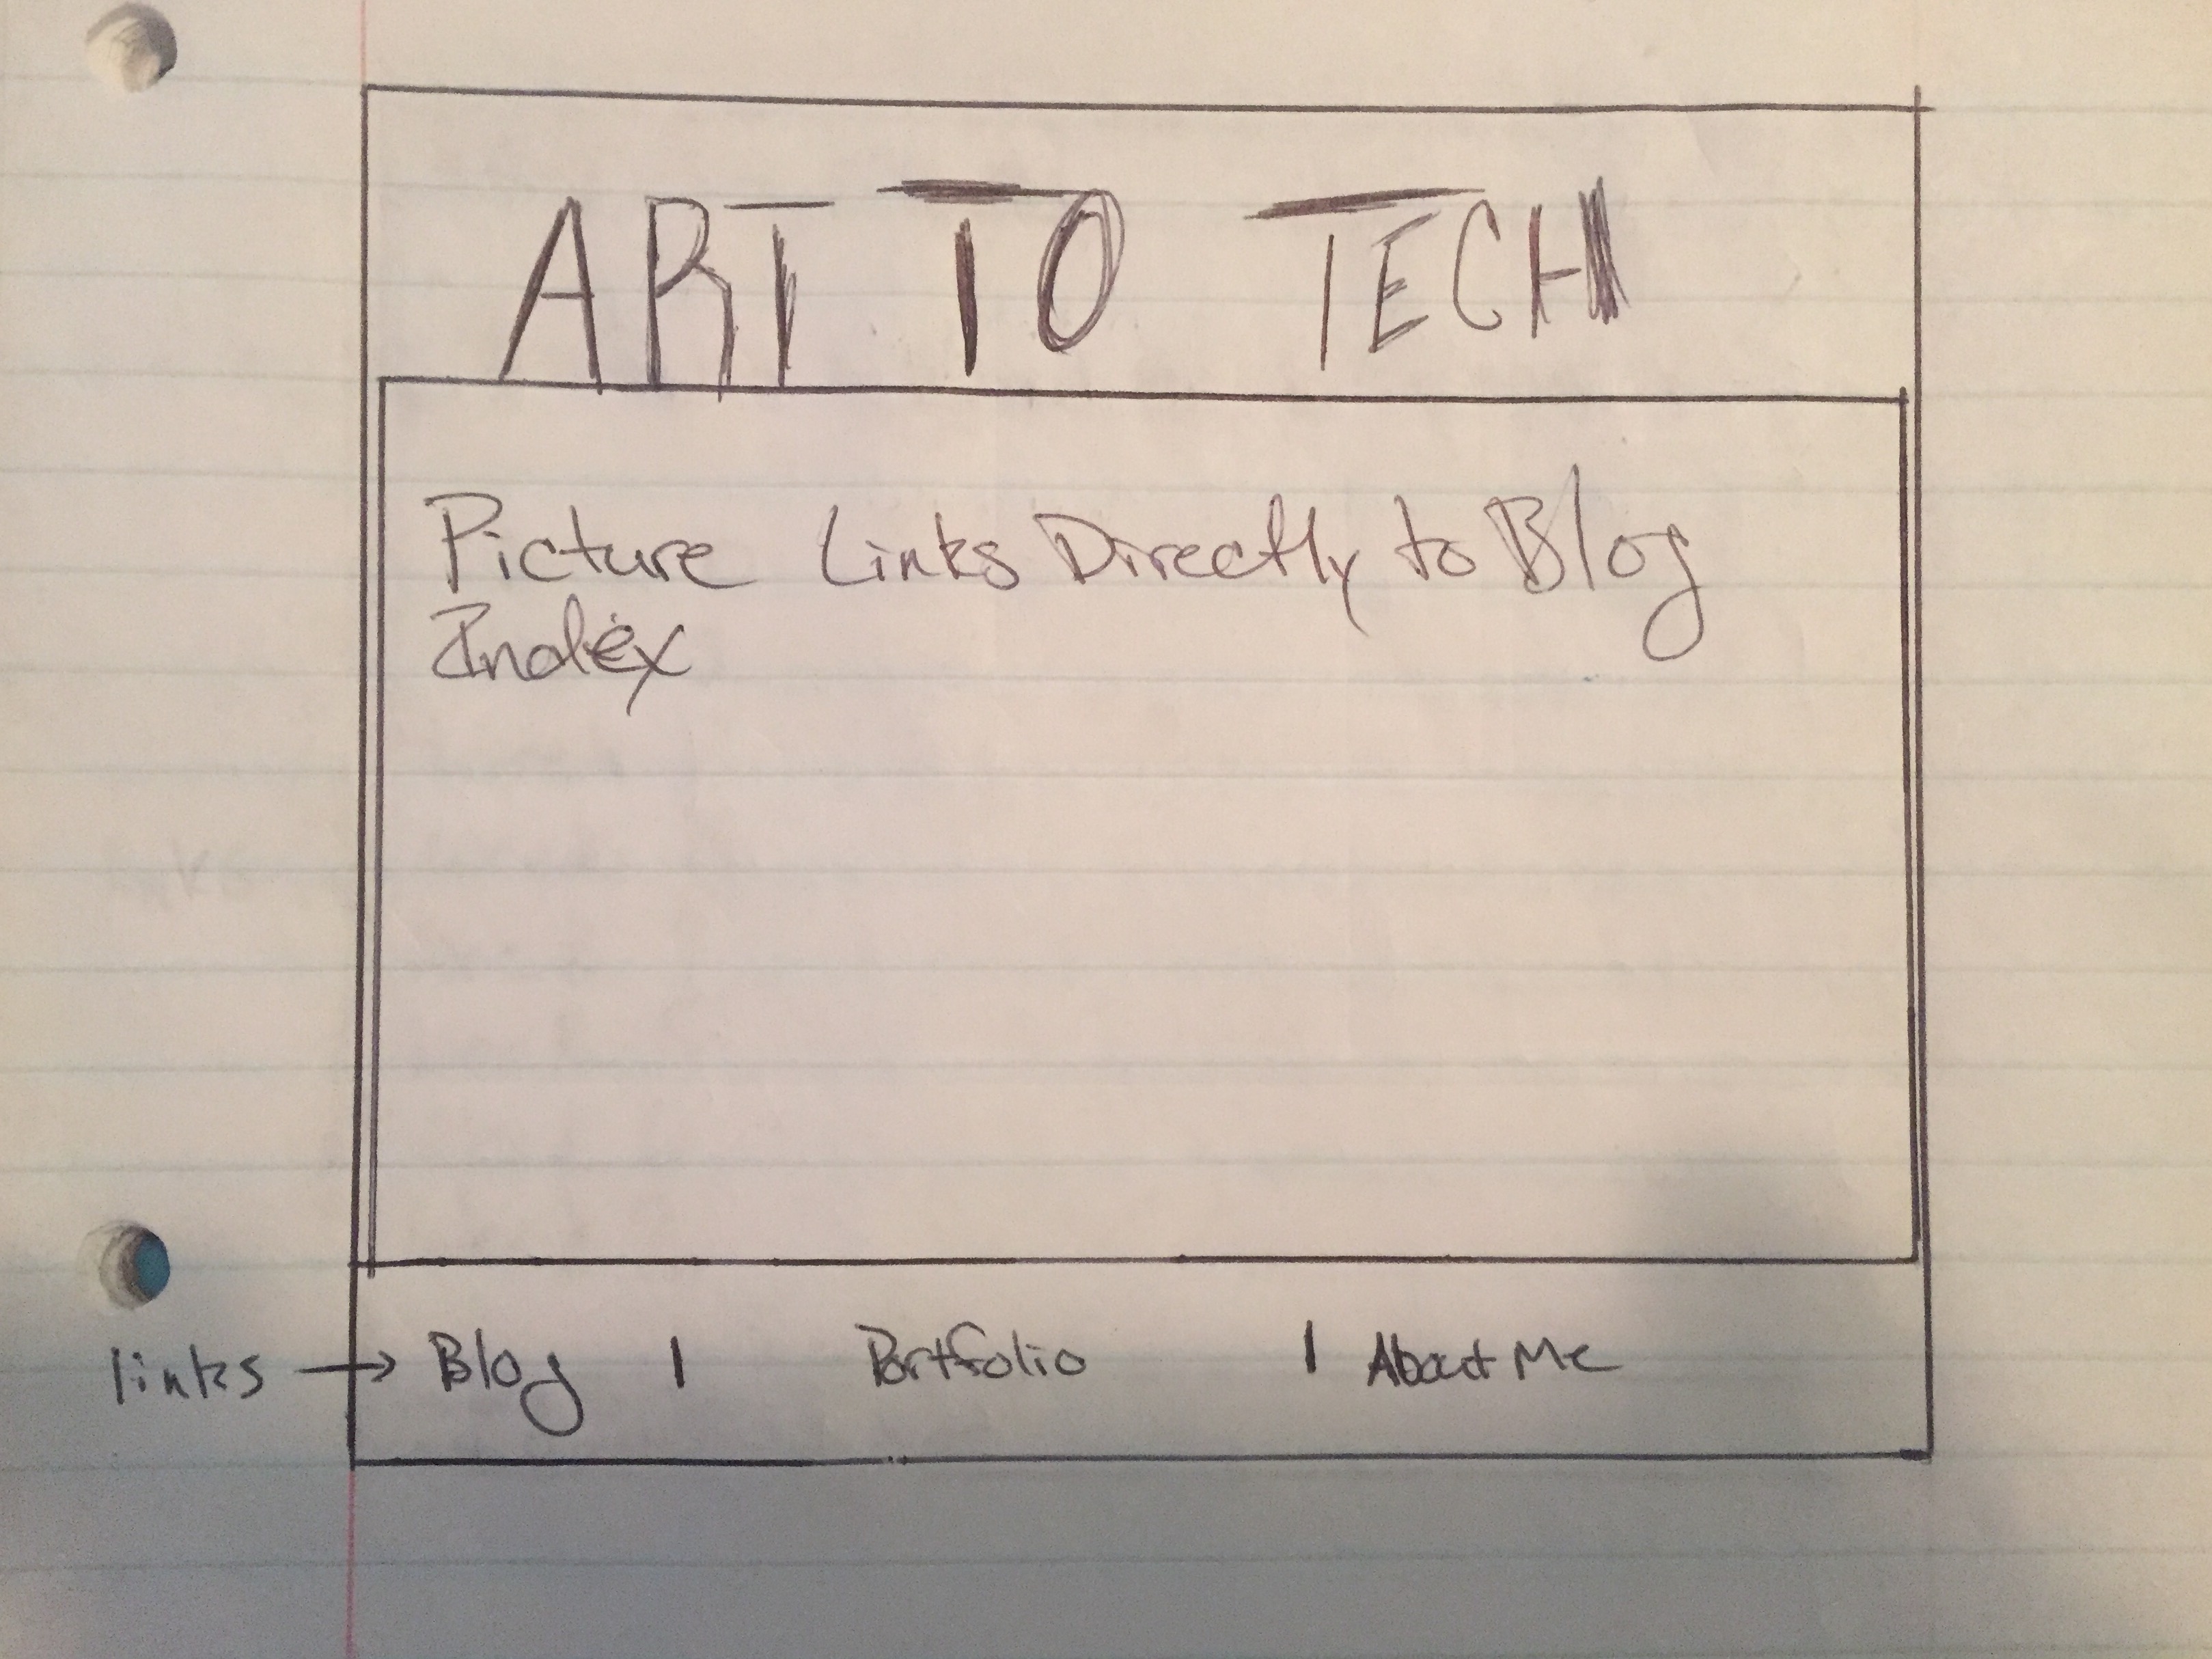 ART TO TECH
Picture Links Directly to Blog
Index
links → Blog | Portfolio | About Me